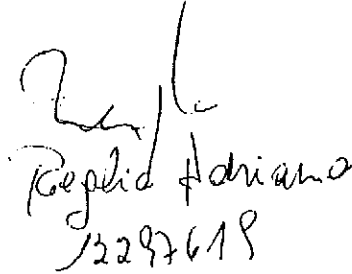 Rogelio Adriano
13297619